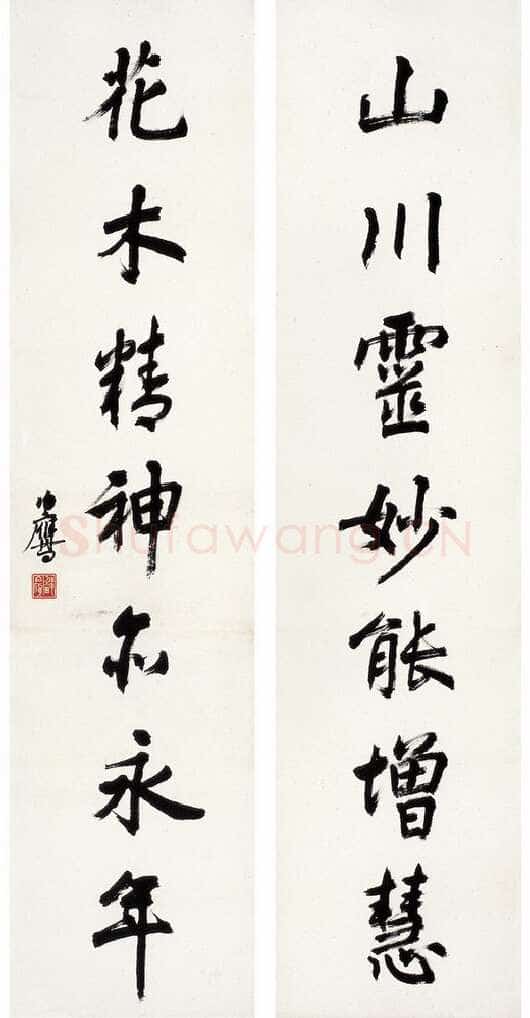 山川靈妙能增慧
花木精神亦永年
Shufawang.CN